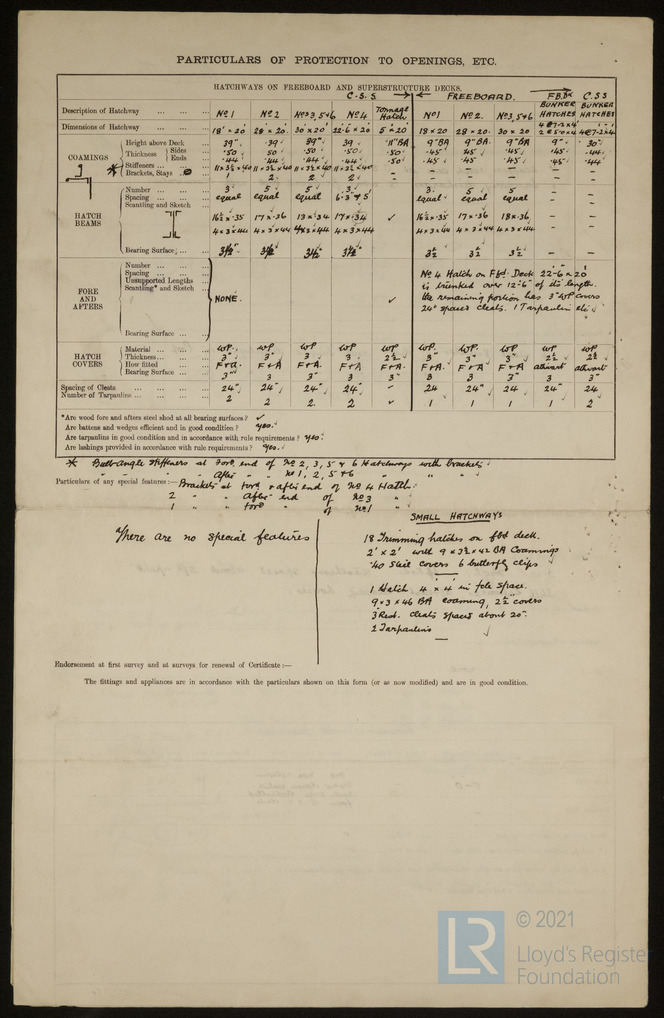 PARTICULARS OF PROTECTION TO OPENINGS, ETC.
HATCHWAYS ON FREEBOARD AND SUPERSTRUCTURE DECKS.
C.S.S FREEBOARD. F.B.Dk C.S.S
Description of Hatchway No 1 No 2 No 3, 5+6 No 4 Tonnage Hatch No 1 No 2. No 3, 5+6 BUNKER HATCHES BUNKER HATCHES
Dimensions of Hatchway 18' × 20' 28 × 20 30 × 20 22-6 × 20 5 × 20 18 × 20 28 × 20 30 × 20
COAMINGS
Height above Deck 39" 39 39" 39 11" BA 9" BA 9" BA 9" BA 9" 30"
Thickness Sides .50 .50 .50 .50 .50 .45 .45 .45 .45 .44
Ends .44 .44 .44 .44 .50 .45 .45 .45 .45 .44
Stiffeners 11×3½×40 11×3½×40 11×3½×40 11×3½×40 – – – – – –
Brackets, Stays 1 2 2 2 – – – – – –
HATCH BEAMS
Number 3 5 5 3 3 5 5 – –
Spacing equal equal equal 6.3" & 5' equal equal equal – –
Scantling and Sketch 16½ × .35 17 × .36 17 × .34 16½ × .35 17 × .36 18 × .36 – –
4×3×44 4×3×44 4×3×44 4×3×44 4×3×44 4×3×44 4×3×44 – –
Bearing Surface 3½" 3½ 3½ 3½" 3½ 3½ 3½ – –
FORE AND AFTERS
Number
Spacing
Unsupported Lengths
Scantling* and Sketch
NONE.
No 4 Hatch on Fbd. Deck 22-6 × 20'
is trunked over 12'-6" of its length.
the remaining portion has 3" WP covers
24" spaced cleats. 1 Tarpaulin
Bearing Surface
HATCH COVERS
Material WP. WP WP WP WP WP. WP WP. WP. WP
Thickness 3" 3" 3 3 2½ 3" 3" 3" 2½ 2½
How fitted F+A. F+A F+A. F+A. F+A. F+A. F+A F+A. athwart athwart
Bearing Surface 3" 3 3" 3 3" 3 3 3" 3 3"
Spacing of Cleats 24" 24" 24" 24" 24 24" 24 24" 24
Number of Tarpaulins 2 2 2. 2 1 1 1 1 2
*Are wood fore and afters steel shod at all bearing surfaces?
Are battens and wedges efficient and in good condition? yes.
Are tarpaulins in good condition and in accordance with rule requirements? yes.
Are lashings provided in accordance with rule requirements? yes.
* Bulb Angle Stiffeners at Ford. end of No 2, 3, 5 & 6 Hatchways with brackets
" " " After " " No 1, 2, 5+6 " " "
Particulars of any special features:— Brackets at ford + after end of No 4 Hatch.
2 " After end of No 3 "
1 " ford " of No 1 "
There are no special features
SMALL HATCHWAYS
18 Trimming hatches on fbd deck.
2' × 2' with 9 × 3½ × 42 BA Coamings
.40 Steel covers 6 butterfly clips
1 Hatch 4' × 4' in fcle space.
9×3×46 BA coaming, 2½" covers
3 Rest. cleats spaced about 20".
2 Tarpaulins
Endorsement at first survey and at surveys for renewal of Certificate:—
The fittings and appliances are in accordance with the particulars shown on this form (or as now modified) and are in good condition.
LR
© 2021
Lloyd's Register
Foundation